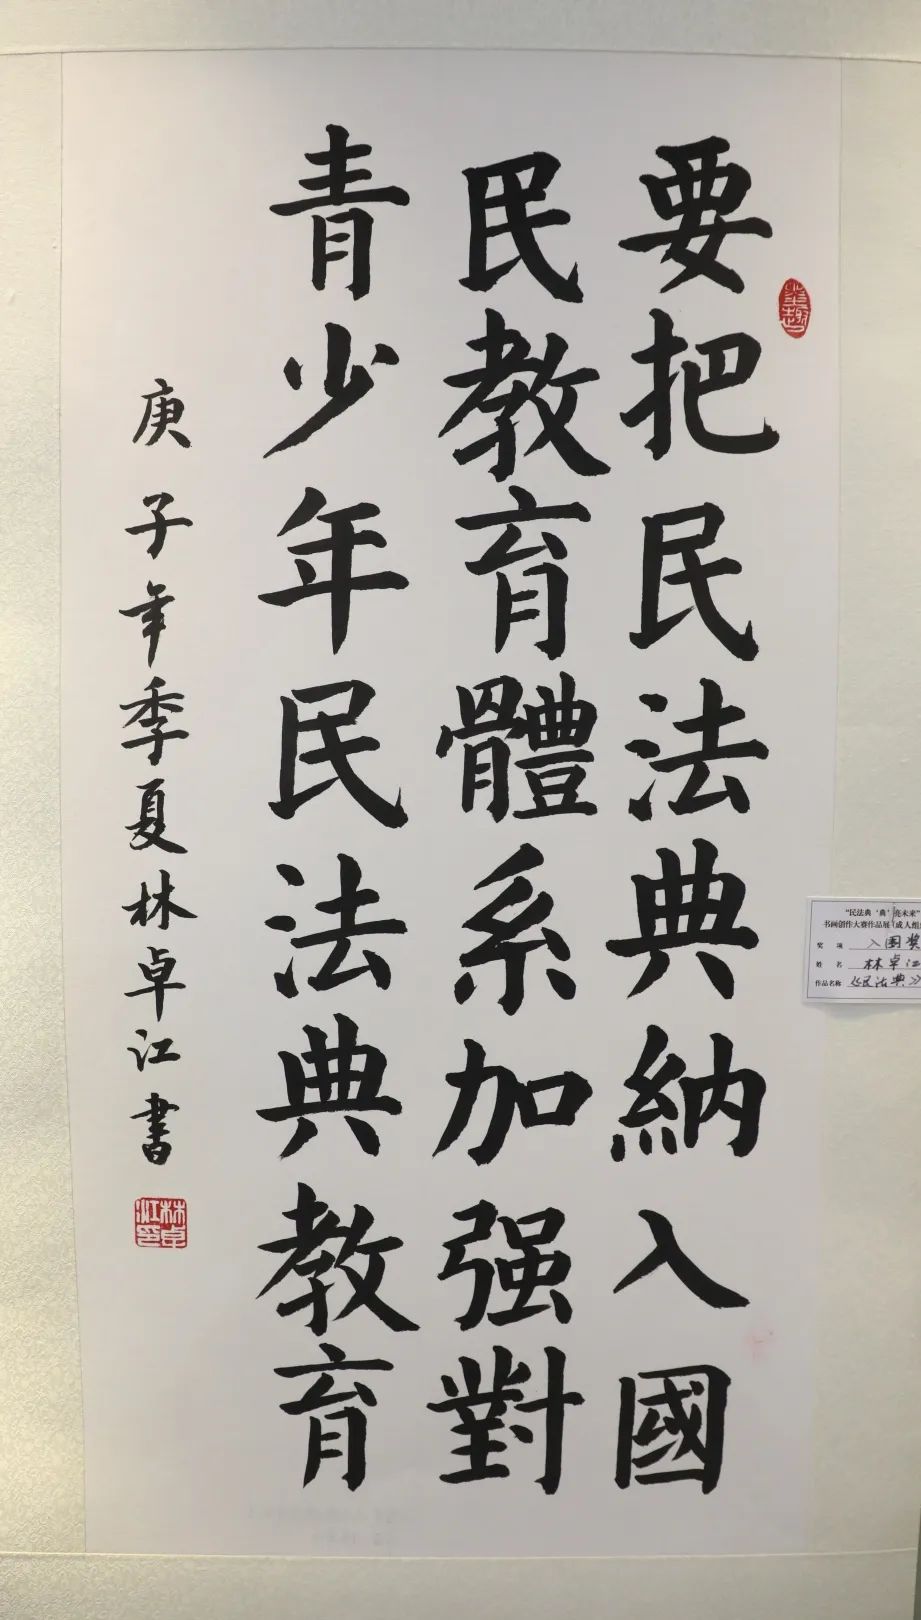 要把民法典納入國
民教育體系加强對
青少年民法典教育
庚子年季夏林卓江書
林卓江印
"民法典‘典’亮未来"
书画创作大赛作品展（成人组
奖 项 入围奖
姓 名 林卓江
作品名称 《民法典》